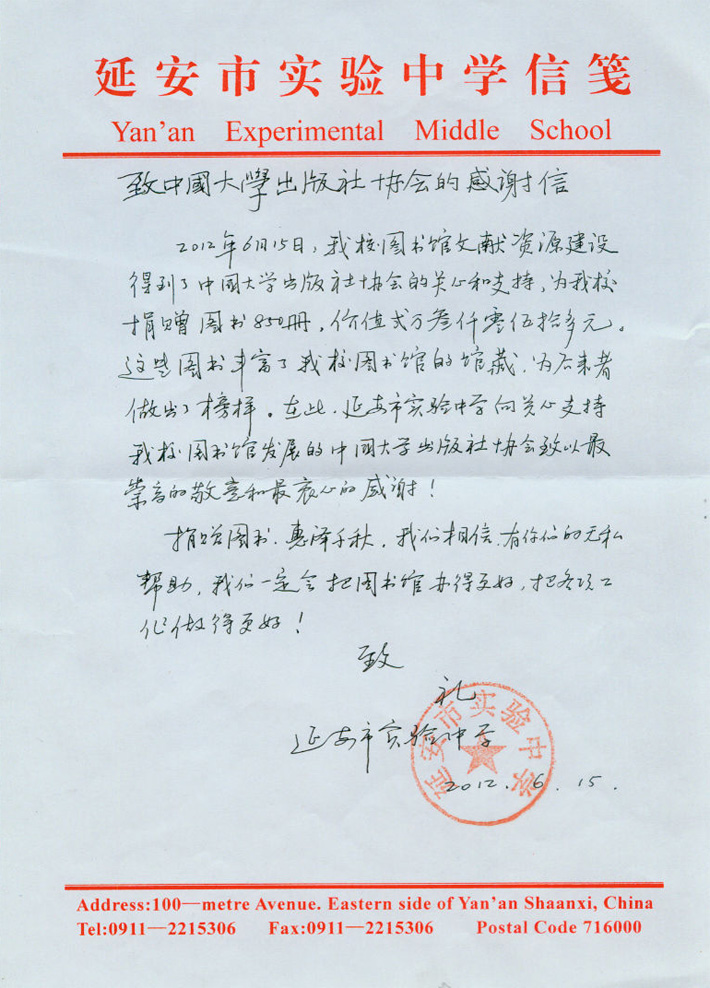 延安市实验中学信笺
Yan'an Experimental Middle School
致中國大學出版社协会的感谢信
2012年6月15日，我校图书馆文献资源建设
得到了中国大学出版社协会的关心和支持，为我校
捐赠图书850册，价值贰万叁仟零伍拾多元。
这些图书丰富了我校图书馆的馆藏，为后来者
做出了榜样。在此，延安市实验中学向关心支持
我校图书馆发展的中国大学出版社协会致以最
崇高的敬意和最衷心的感谢！
捐赠图书，惠泽千秋，我们相信，有你们的无私
帮助，我们一定会把图书馆办得更好，把各项工
作做得更好！
致
礼
延安市实验中学
延安市实验中学
2012.6.15.
Address:100—metre Avenue. Eastern side of Yan'an Shaanxi, China
Tel:0911—2215306 Fax:0911—2215306 Postal Code 716000